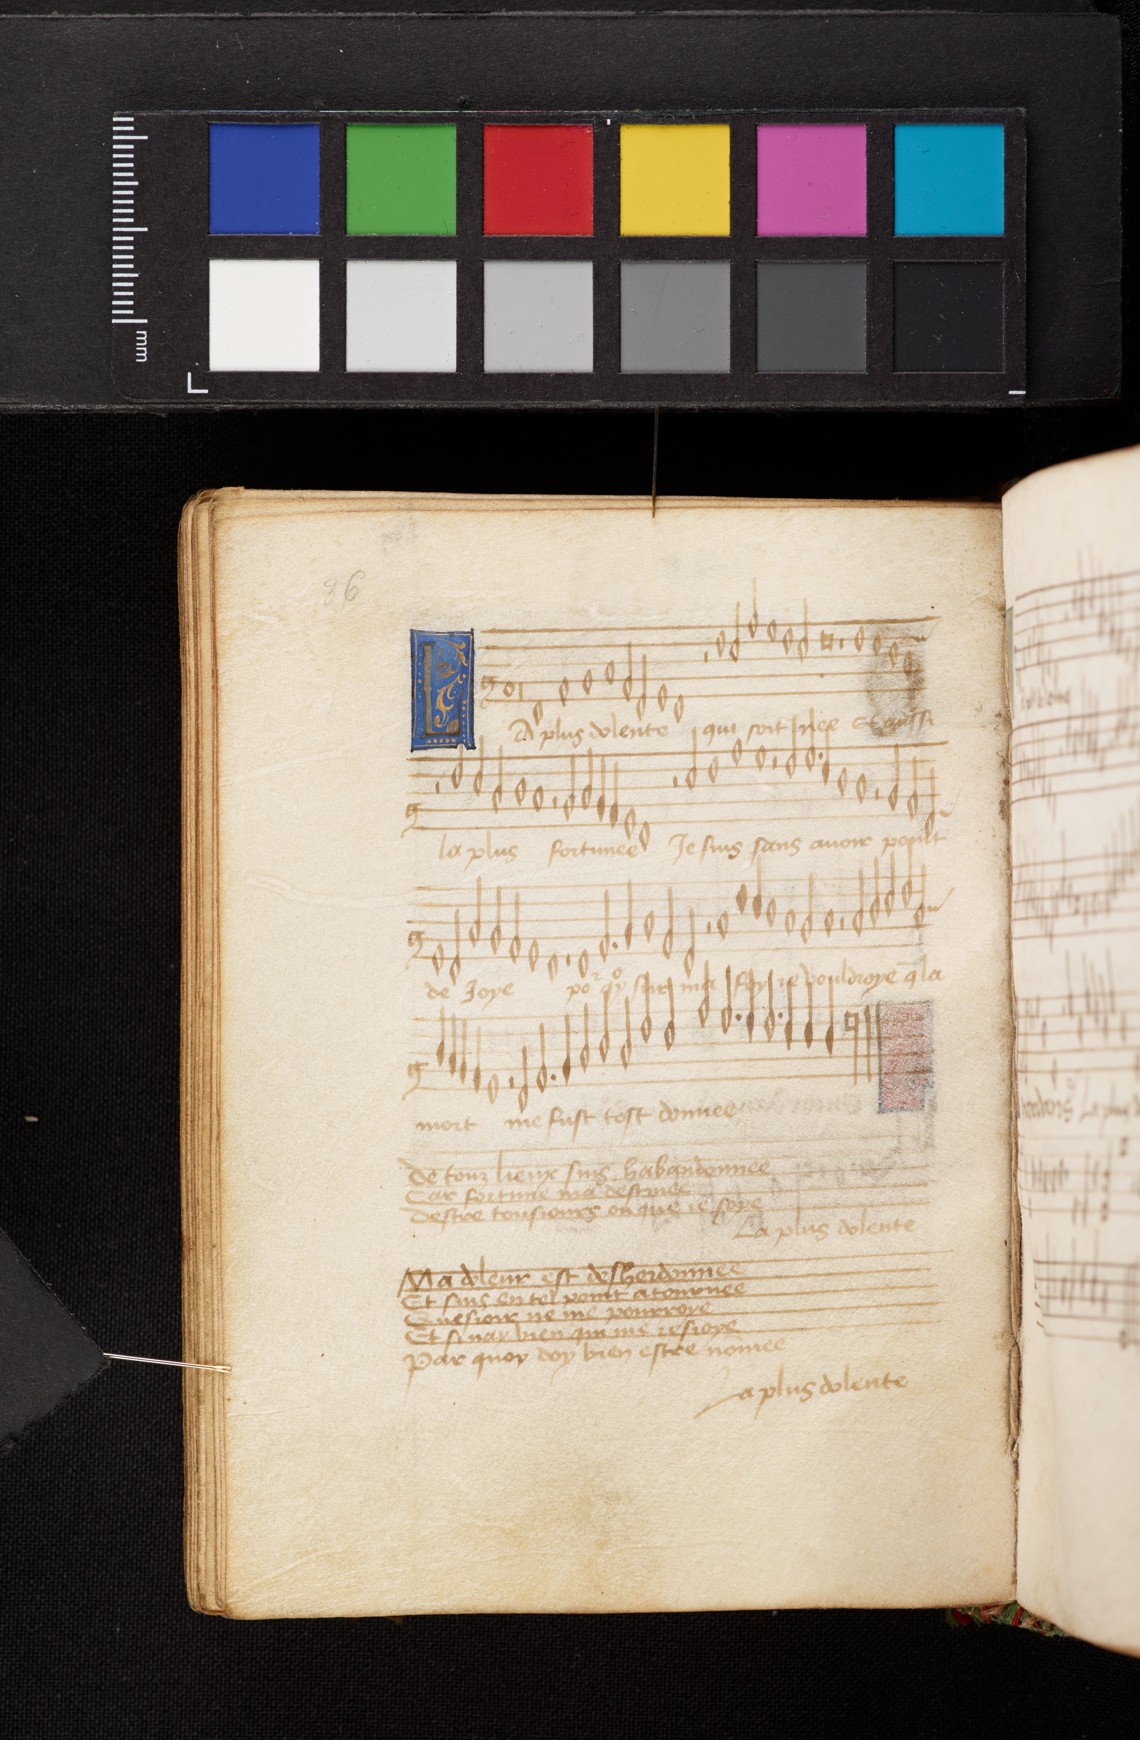 mm
36
LA plus dolente qui soit nee Et aussi
la plus fortunee Je suis sans avoir point
de Joye por quoy sur ma foy ie vouldroye q̄ la
mort me fust tost donnee
De touz lieux suis habandonnee
Car fortune ma destinee
Destre tousiours ou que ie soye
La plus dolente
Ma doleur est desherdonnee
Et suis en tel point atournee
Quesioir ne me pourroye
Et si nay bien qui me resioye
Par quoy doy bien estre nomee
La plus dolente
La plus